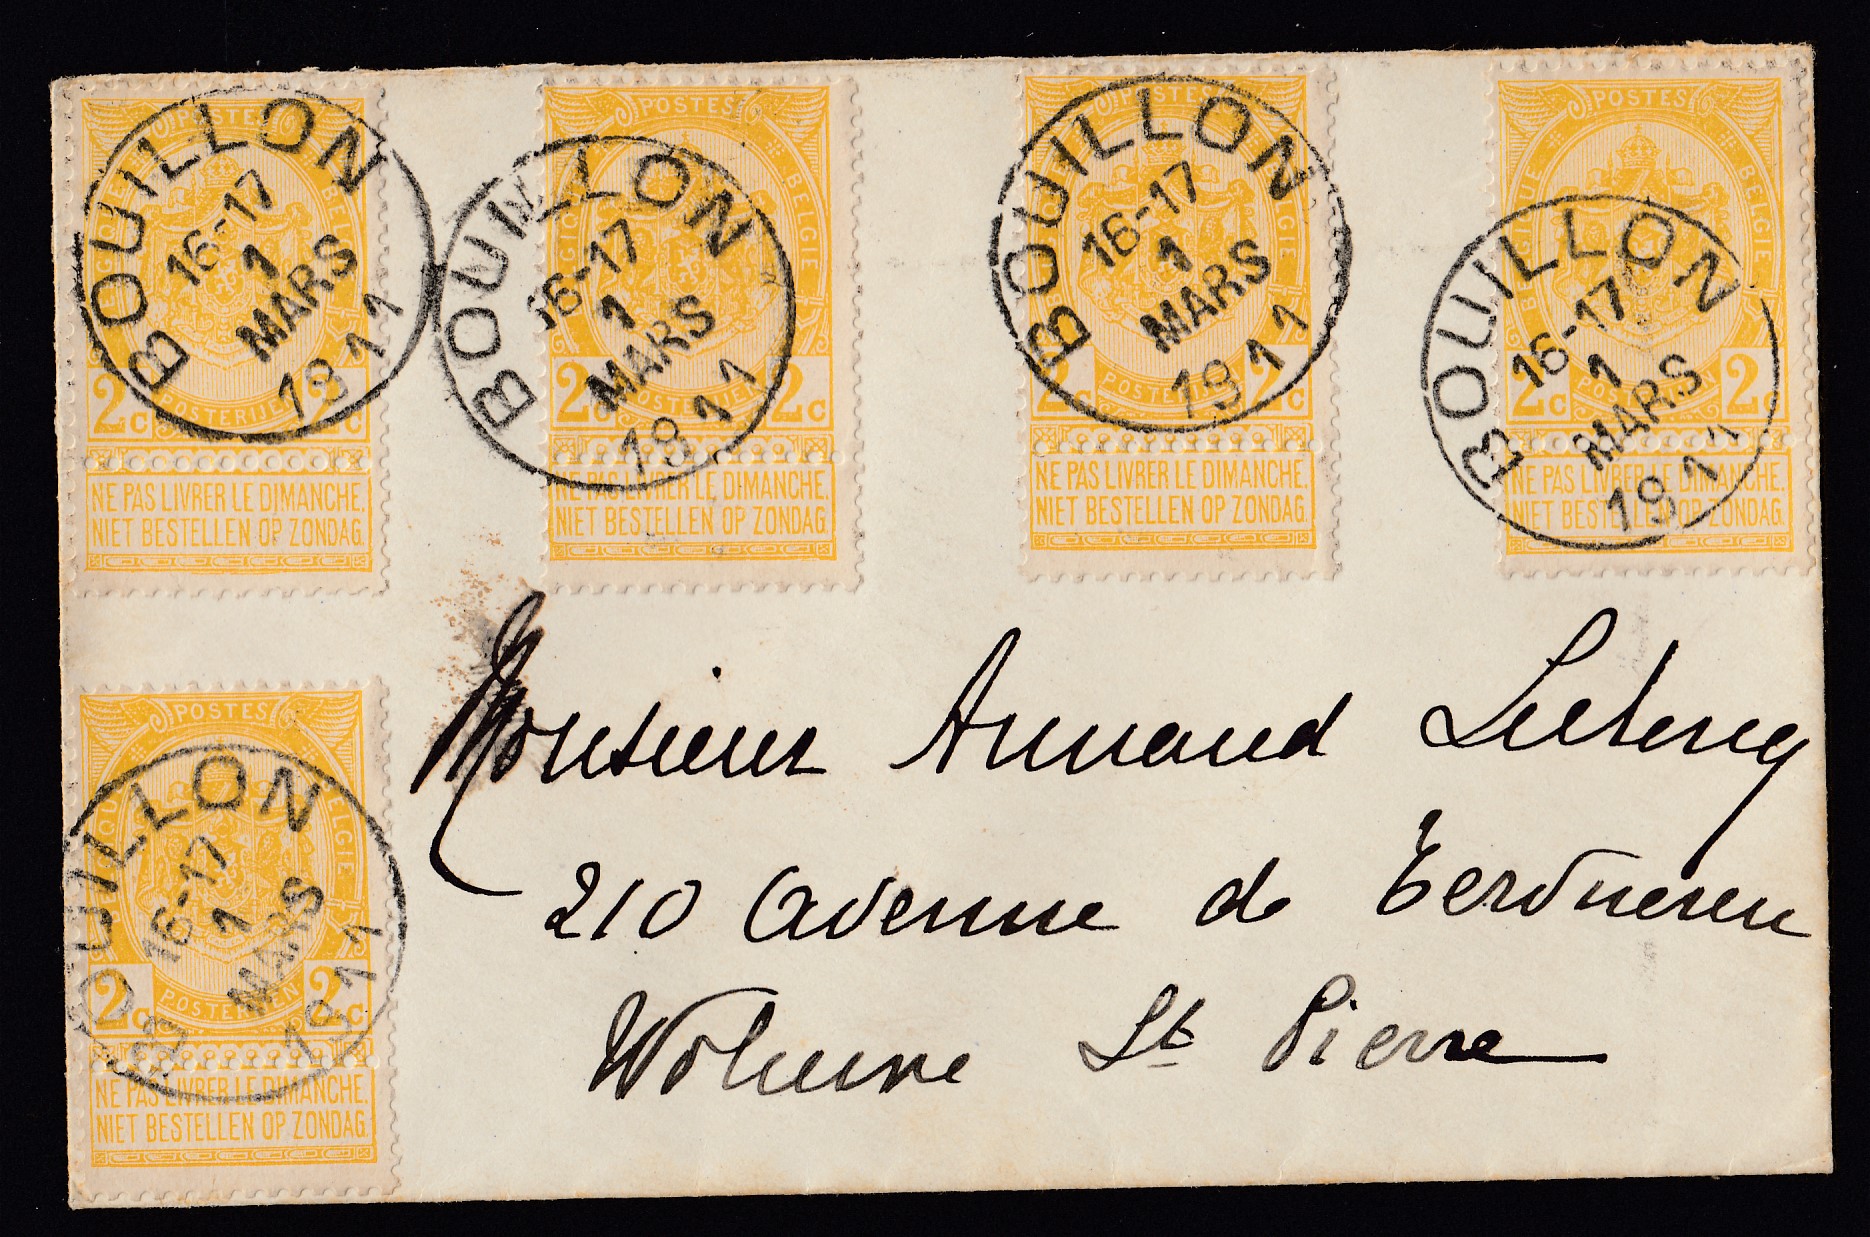 POSTES
BELGIQUE BELGIE
2c 2c
POSTERIJEN
NE PAS LIVRER LE DIMANCHE.
NIET BESTELLEN OP ZONDAG.
BOUILLON
16-17
1
MARS
1911
POSTES
BELGIQUE BELGIE
2c 2c
POSTERIJEN
NE PAS LIVRER LE DIMANCHE.
NIET BESTELLEN OP ZONDAG.
BOUILLON
16-17
1
MARS
1911
POSTES
BELGIQUE BELGIE
2c 2c
POSTERIJEN
NE PAS LIVRER LE DIMANCHE.
NIET BESTELLEN OP ZONDAG.
BOUILLON
16-17
1
MARS
1911
POSTES
BELGIQUE BELGIE
2c 2c
POSTERIJEN
NE PAS LIVRER LE DIMANCHE.
NIET BESTELLEN OP ZONDAG.
BOUILLON
16-17
1
MARS
1911
POSTES
BELGIQUE BELGIE
2c 2c
POSTERIJEN
NE PAS LIVRER LE DIMANCHE.
NIET BESTELLEN OP ZONDAG.
BOUILLON
16-17
1
MARS
1911
Monsieur Armand Leclercq
210 Avenue de Tervueren
Woluwe St Pierre